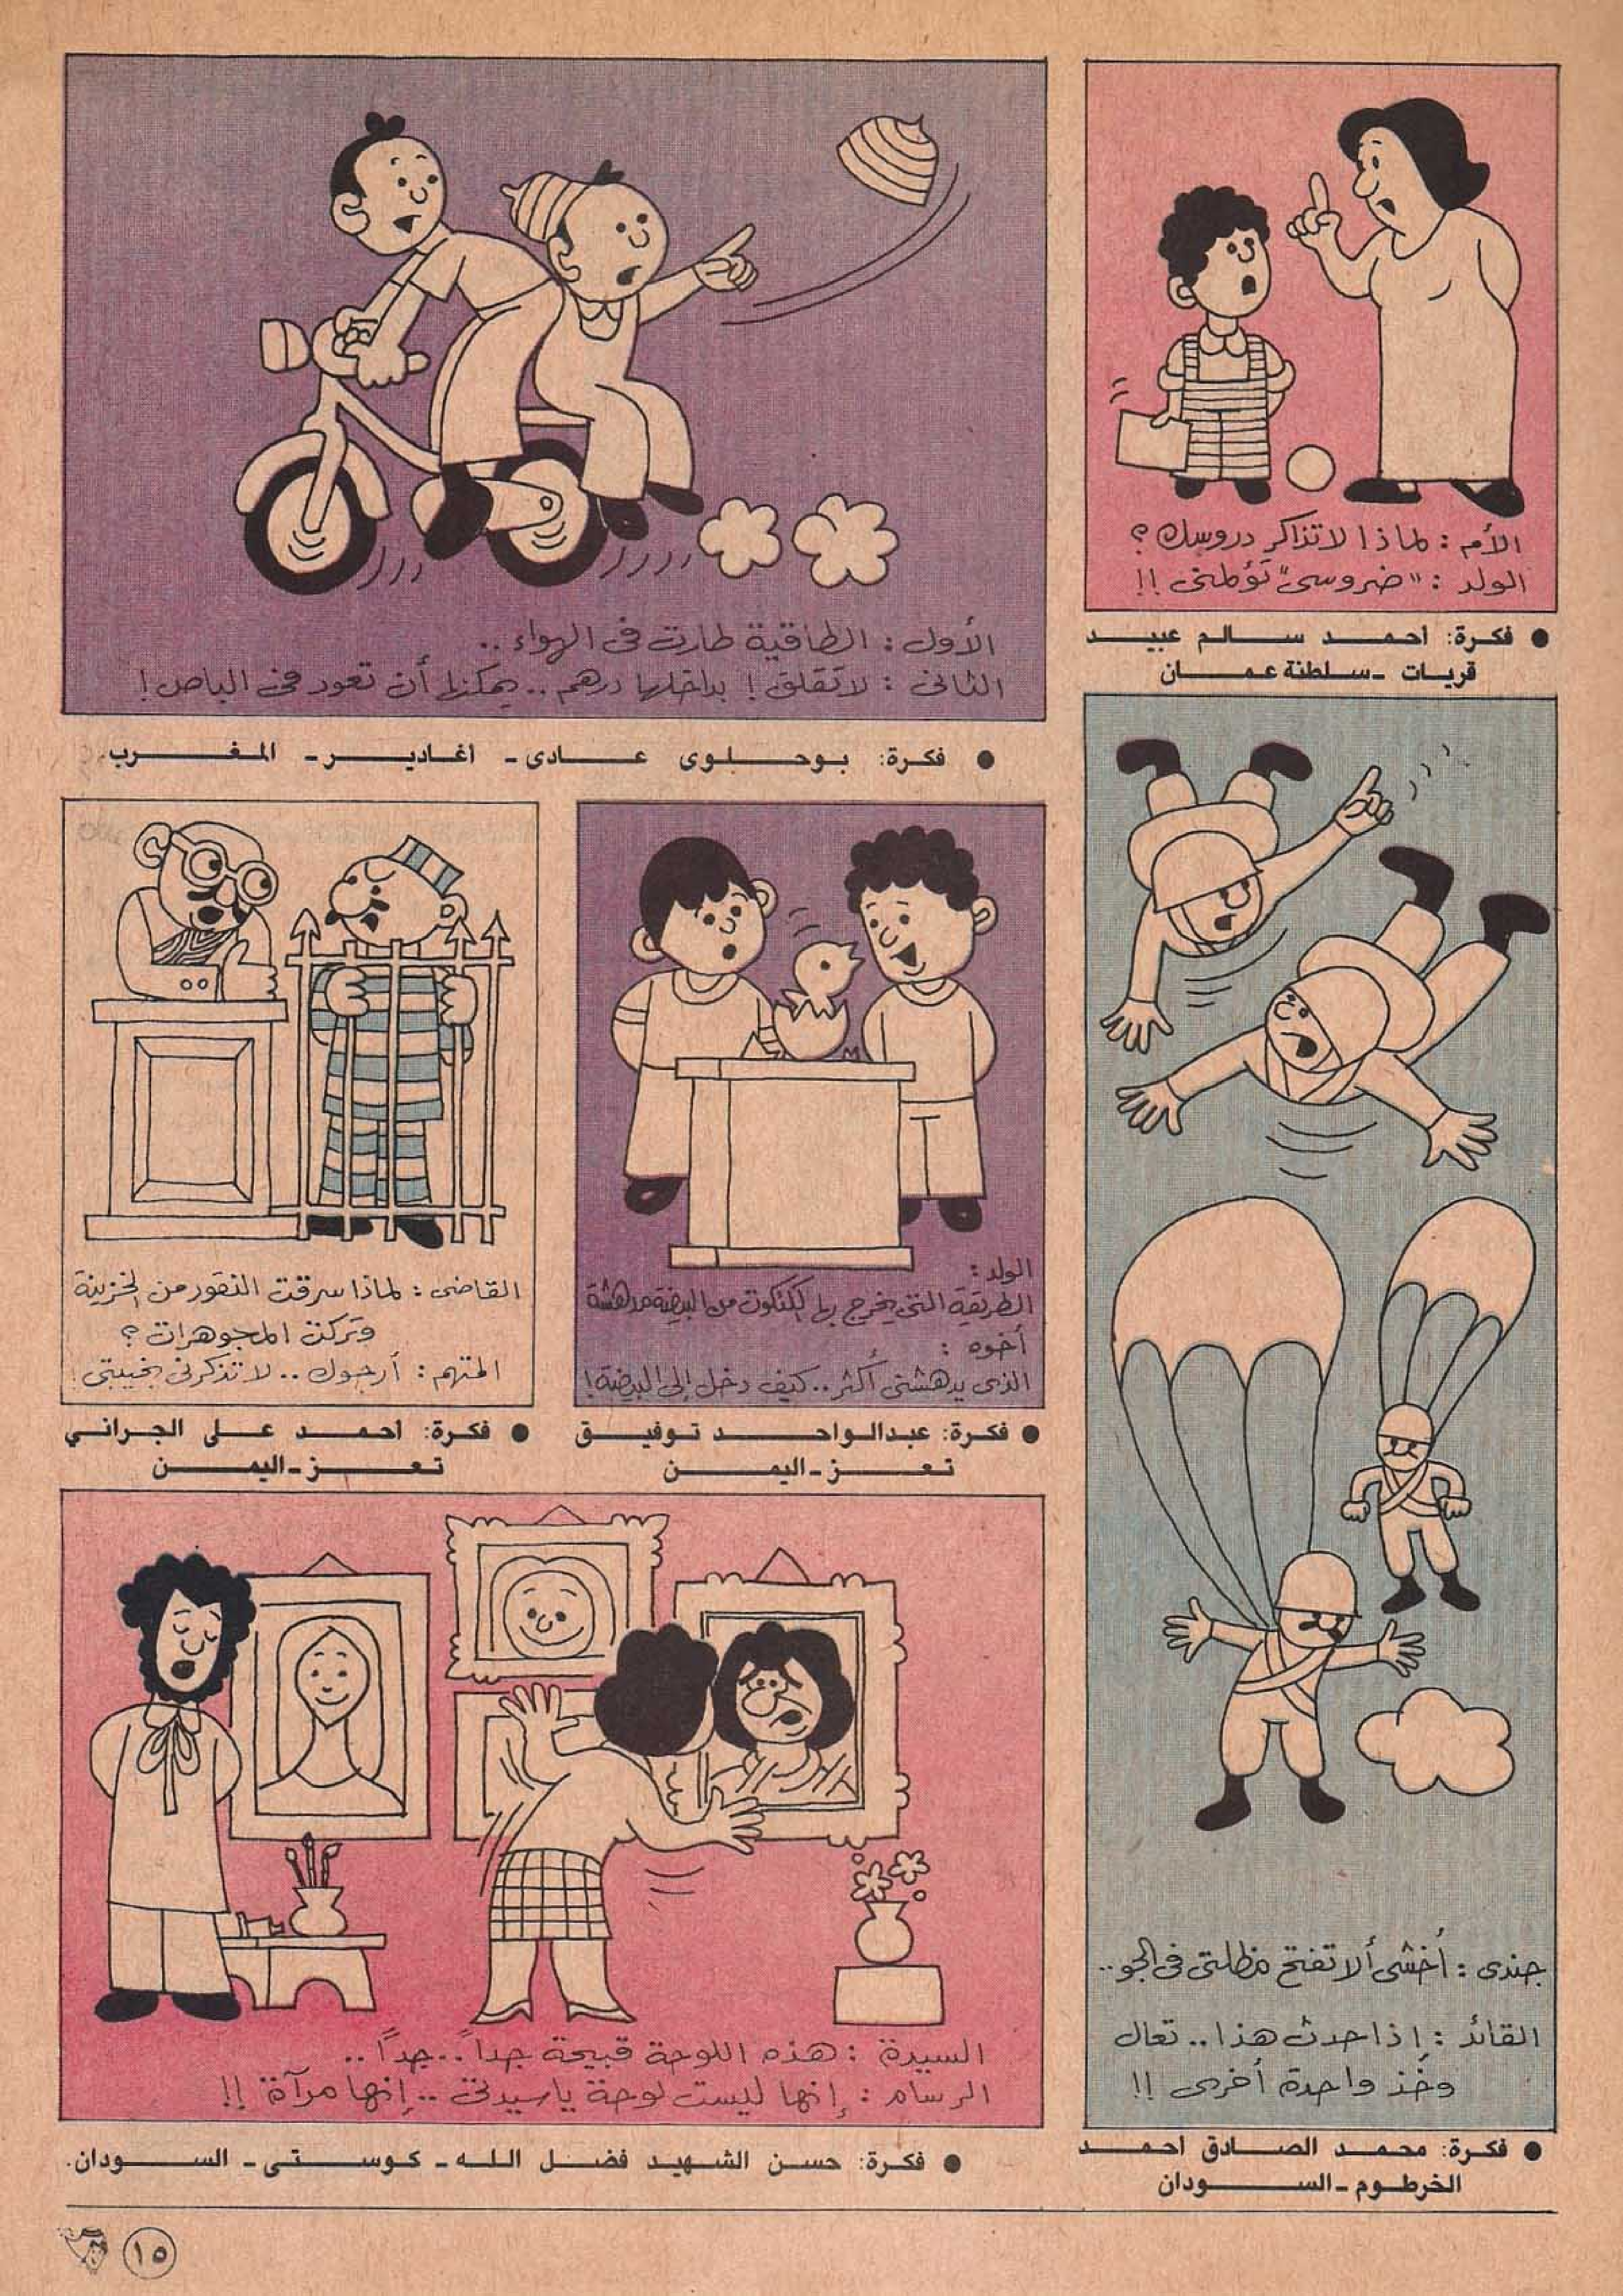 الأم : لماذا لا تذاكر دروسك ؟
الولد : "ضروسى" تؤلمنى !!
● فكرة: أحمد سالم عبيد
قريات - سلطنة عمان
الأول : الطاقية طارت فى الهواء ..
الثانى : لا تقلق ! بداخلها درهم .. يمكنها أن تعود فى الباص !
● فكرة: بوحلوى عادى - أغادير - المغرب.
جندى : أخشى ألا تفتح مظلتى فى الجو ..
القائد : إذا حدث هذا .. تعال
وخذ واحدة أخرى !!
● فكرة: محمد الصادق أحمد
الخرطوم - السودان
الولد :
الطريقة التى يخرج بها الكتكوت من البيضة مدهشة
أخوه :
الذى يدهشنى أكثر .. كيف دخل إلى البيضة !
● فكرة: عبدالواحد توفيق
تعز - اليمن
القاضى : لماذا سرقت النقود من الخزينة
وتركت المجوهرات ؟
المتهم : أرجوك .. لا تذكرنى بخيبتى !
● فكرة: أحمد على الجرانى
تعز - اليمن
السيدة : هذه اللوحة قبيحة جداً .. جداً ..
الرسام : إنها ليست لوحة يا سيدتى .. إنها مرآة !!
● فكرة: حسن الشهيد فضل الله - كوستى - السودان.
١٥